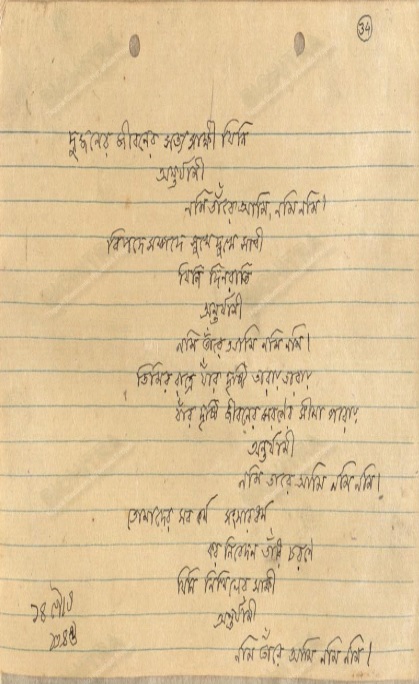 34
দুজনের জীবনের সত্য সাক্ষী যিনি
অন্তর্যামী
নমি তাঁরে আমি, নমি নমি।
বিপদে সম্পদে সুখে দুখে সাথী
যিনি দিনরাতি
অন্তর্যামী
নমি তাঁরে আমি নমি নমি।
তিমির রাত্রে যাঁর দৃষ্টি তারায় তারায়
যাঁর দৃষ্টি জীবনের মরণের সীমা পারায়
অন্তর্যামী
নমি তাঁরে আমি নমি নমি।
তোমাদের সব কর্ম সংসারধর্ম
কর নিবেদন তাঁরি চরণে
যিনি নিখিলের সাক্ষী
অন্তর্যামী
নমি তাঁরে আমি নমি নমি।
১৪ পৌষ